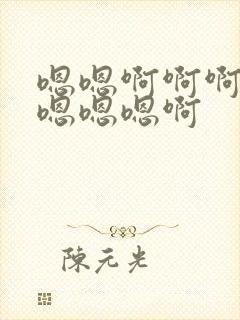 嗯嗯啊啊啊
嗯嗯嗯啊
陳元光